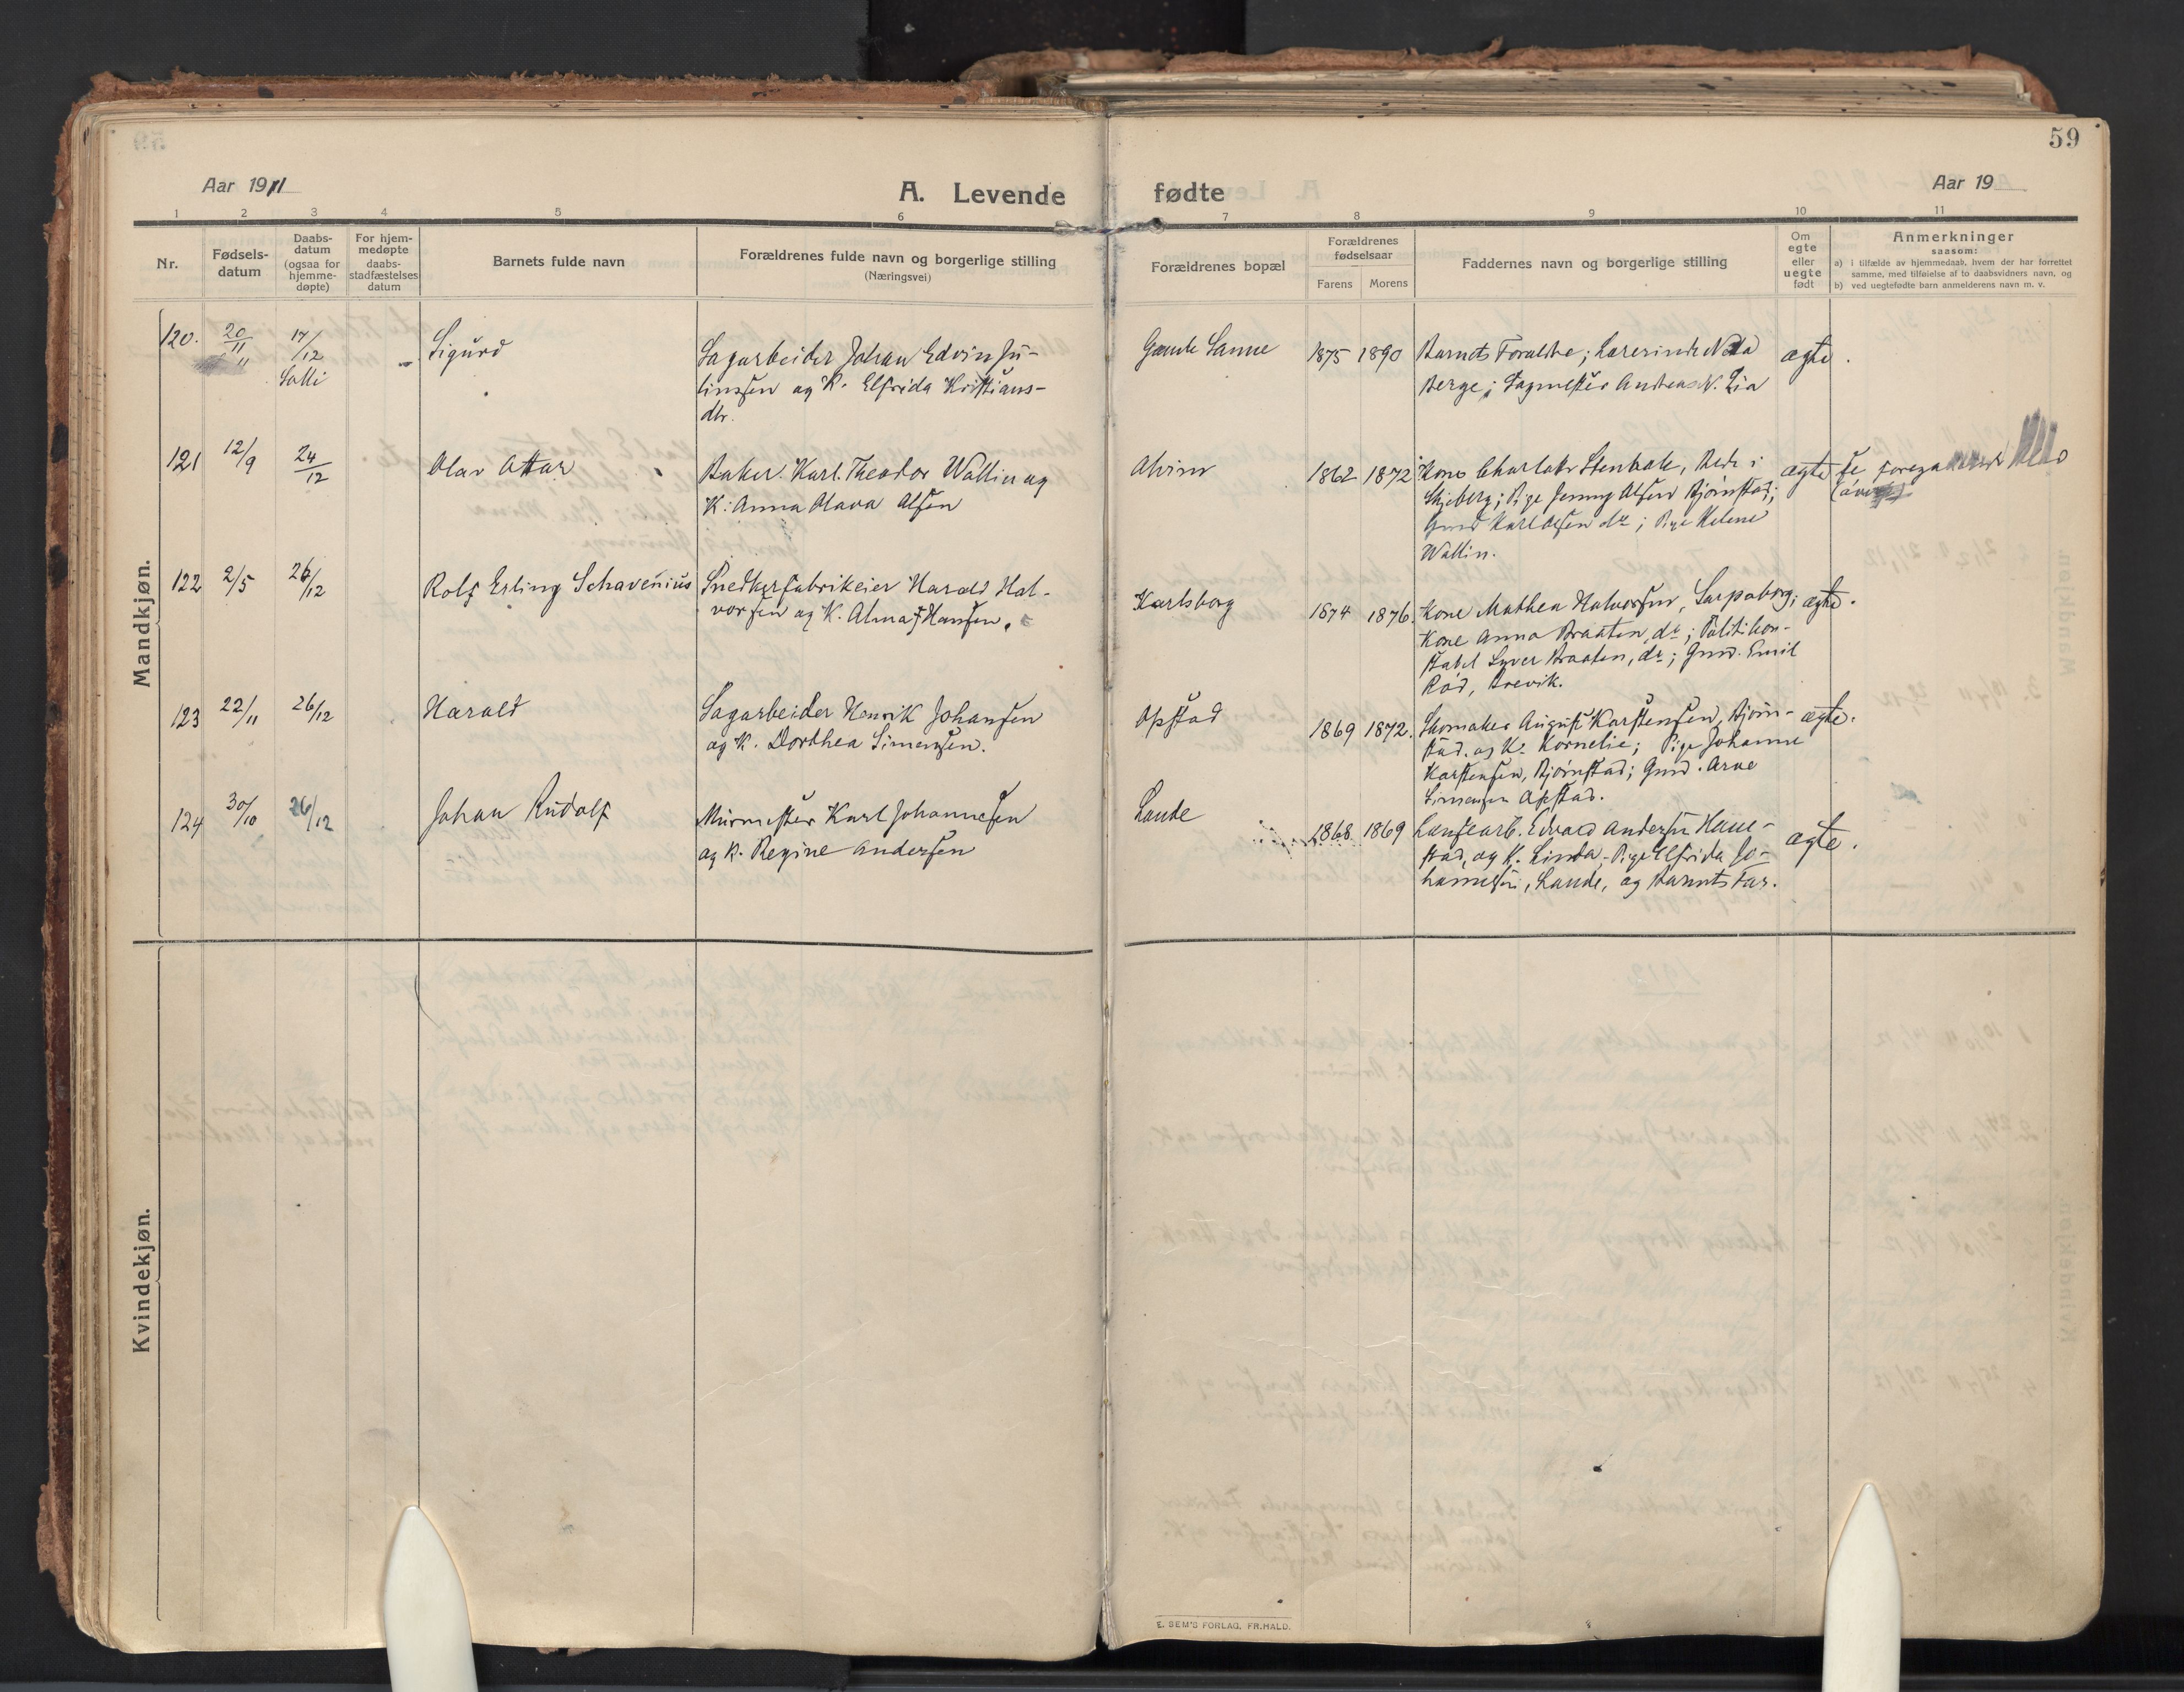 59
Aar 1911
A. Levende fødte
Aar 19
1 2 3 4 5 6 7 8 9 10 11
Nr.
Fødsels-
datum
Daabs-
datum
(ogsaa for
hjemme-
døpte)
For hjem-
medøpte
daabs-
stadfæstelses
datum
Barnets fulde navn
Forældrenes fulde navn og borgerlige stilling
(Næringsvei)
Forældrenes bopæl
Forældrenes
fødselsaar
Farens Morens
Faddernes navn og borgerlige stilling
Om
egte
eller
uegte
født
Anmerkninger
saasom:
a) i tilfælde av hjemmedaab, hvem der har forrettet
samme, med tilføielse af to daabsvidners navn, og
b) ved uegtefødte barn anmelderens navn m. v.
Mandkjøn.
120.
20/11
17/12
Solli
Sigurd
Sagarbeider Johan Edvin Ju-
linssen og K. Elfrida Kristians-
dtr.
Gamle Sanne
1875 1890
Barnets Forældre; Lærerinde
Berge; Sagmester Andreas N. Lia
ægte.
121
12/9
24/12
Olav Ottar
Baker Karl Theodor Wallin og
K. Anna Olava Olsen
Alvim
1862 1872
Kone Charlotte Stenbæk,
Skjeberg; Pige Jenny Olsen Bjørnstad;
Gmd Karl Olsen do; Pige Helene
Wallin.
ægte
se
122
2/5
26/12
Rolf Erling Schavenius
Snedkerfabrikeier Harald Hal-
vorsen og K. Alma f Hansen.
Karlsborg
1874 1876.
Kone Mathea Halvorsen, Sarpsborg;
Kone Anna Braaten, do; Politikon-
stabel Syver Braaten, do; Gmd. Emil
Rød, Brevik.
ægte.
123
22/11
26/12
Harald
Sagarbeider Henrik Johansen
og K. Dorthea Simensen.
Opstad
1869 1872.
Skomaker August Karstensen, Bjørn-
stad, og K. Kornelie; Pige Johanne
Karstensen, Bjørnstad; Gmd. Arne
Simensen Opstad.
ægte.
124
30/10
26/12
Johan Rudolf
Murmester Karl Johannesen
og K. Regine Andersen
Lande
1868 1869
Lensearb. Edvard Andersen Hane-
stad, og K. Linda; Pige Elfrida Jo-
hannesen, Lande, og Barnets Far.
ægte.
Kvindekjøn.
E. SEM'S FORLAG, FR.HALD.